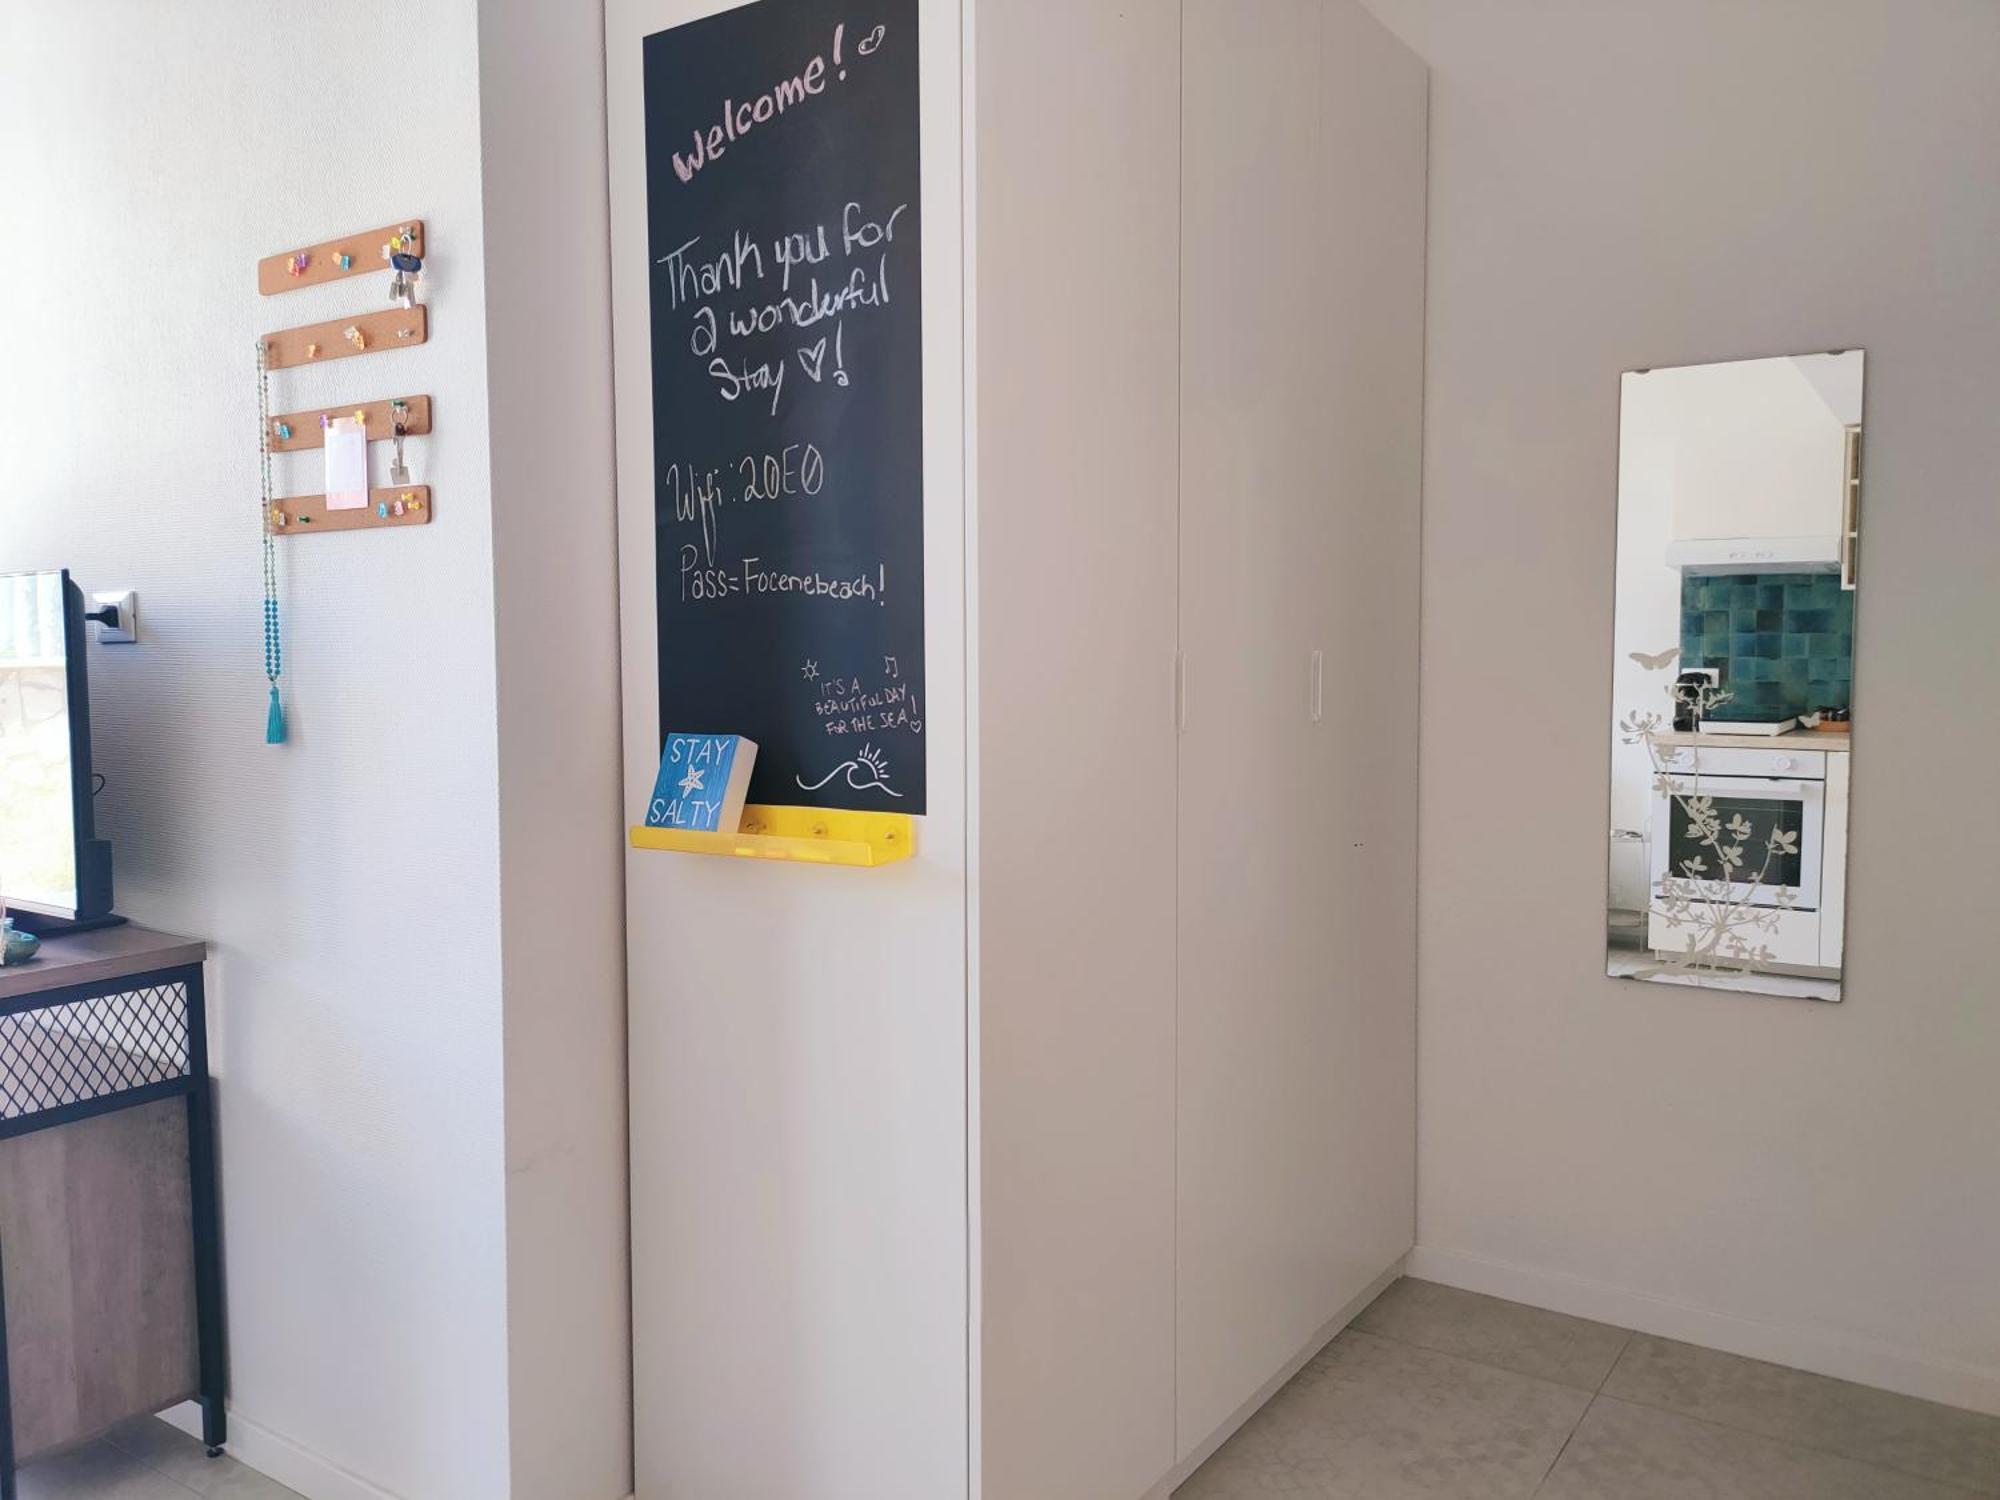 Welcome!
Thank you for
a wonderful
Stay ♡!
Wifi: 20E0
Pass=Focenebeach!
IT'S A
BEAUTIFUL DAY
FOR THE SEA!
STAY
SALTY